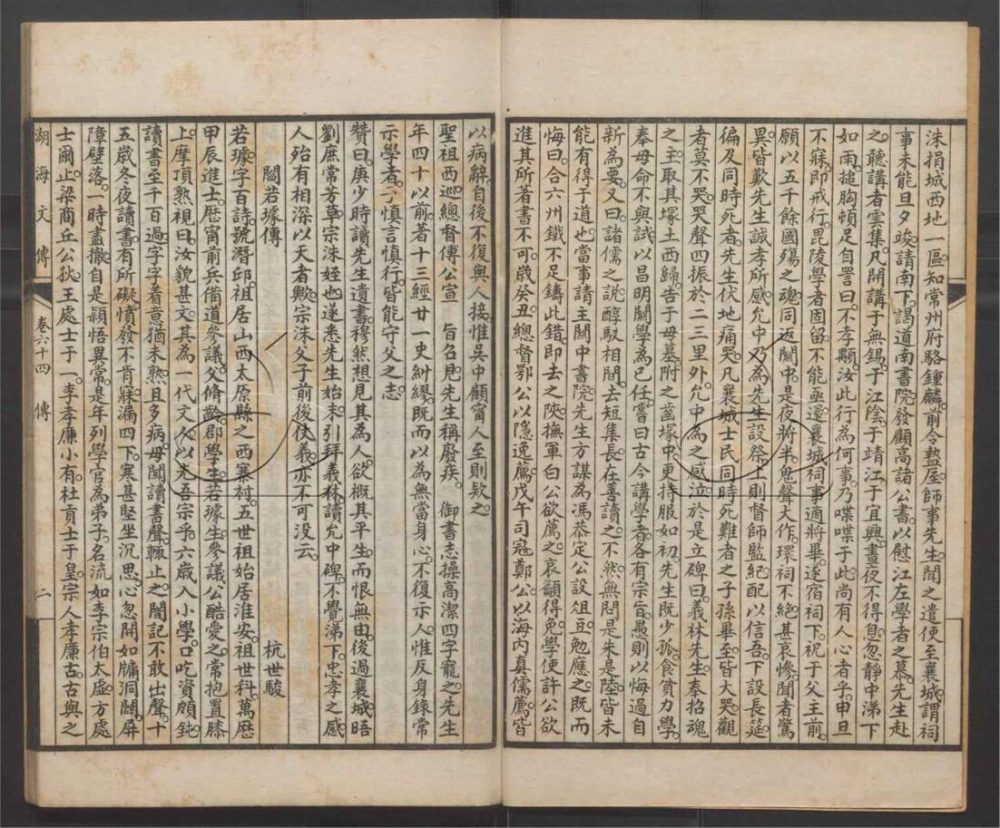 洙捐城西地一區知常州府駱鍾麟前令盩厔師事先生聞之遣使至襄城謂祠
事未能旦夕竣請南下謁道南書院發顧高諸公書以慰江左學者之慕先生赴
之聽講者雲集凡開講于無錫于江陰于靖江于宜興晝夜不得息忽靜中涕下
如雨搥胸頓足自詈曰不孝顒汝此行為何事乃喋喋于此尚有人心者乎申旦
不寐即戒行毘陵學者固留不能亟還襄城祠事適將畢遂宿祠下祝于父主前
願以五千餘國殤之魂同返關中是夜將半鬼聲大作環祠不絶甚哀慘聞者驚
異皆歎先生誠孝所感允中乃為先生設祭上則督師監紀配以信吾下設長筵
徧及同時死者先生伏地痛哭凡襄城士民同時死難者之子孫畢至皆大哭觀
者莫不哭哭聲四振於二三里外允中為之感泣於是立碑曰義林先生奉招魂
之主取其塚土西歸告于母墓附之葢塚中更持服如初先生既少孤食貧力學
奉母命不與試以昌明關學為己任嘗曰古今講學者各有宗旨愚則以悔過自
新為要又曰諸儒之說醇駁相間去短集長在善讀之不然無問是朱是陸皆未
能有得于道也當事請主關中書院先生方謀為馮恭定公設俎豆勉應之既而
悔曰合六州鐵不足鑄此錯即去之陝撫軍白公欲薦之哀籲得免學使許公欲
進其所著書不可歲癸丑總督鄂公以隱逸薦戊午司寇鄭公以海内真儒薦皆
以病辭自後不復與人接惟吳中顧甯人至則欵之
聖祖西巡總督傅公宣　旨召見先生稱廢疾　御書志操高潔四字寵之先生
年四十以前著十三經廿一史糾繆既而以為無當身心不復示人惟反身錄常
示學者子慎言慎行皆能守父之志
贊曰庚少時讀先生遺書穆然想見其為人欲概其平生而恨無由後過襄城晤
劉庶常芳草宗洙姪也遂悉先生始末引拜義林讀允中碑不覺涕下忠孝之感
人殆有相深以天者歟宗洙父子前後仗義亦不可没云
閻若璩傳　杭世駿
若璩字百詩號潛邱祖居山西太原縣之西寨村五世祖始居淮安祖世科萬歷
甲辰進士歷甯前兵備道參議父脩齡郡學生若璩生參議公酷愛之常抱置膝
上摩頂熟視曰汝貌甚文其為一代文人以光吾宗乎六歲入小學口吃資頗鈍
讀書至千百過字字着意猶未熟且多病母聞讀書聲輒止之闇記不敢出聲十
五歲冬夜讀書有所礙憤發不肯寐漏四下寒甚堅坐沉思心忽開如牖洞闢屏
障壁落一時盡撤自是穎悟異常是年列學官為弟子名流如李宗伯太虛方處
士爾止梁商丘公狄王處士于一李孝廉小有杜貢士于皇宗人孝廉古古與之
湖海文傳　卷六十四　傳　二